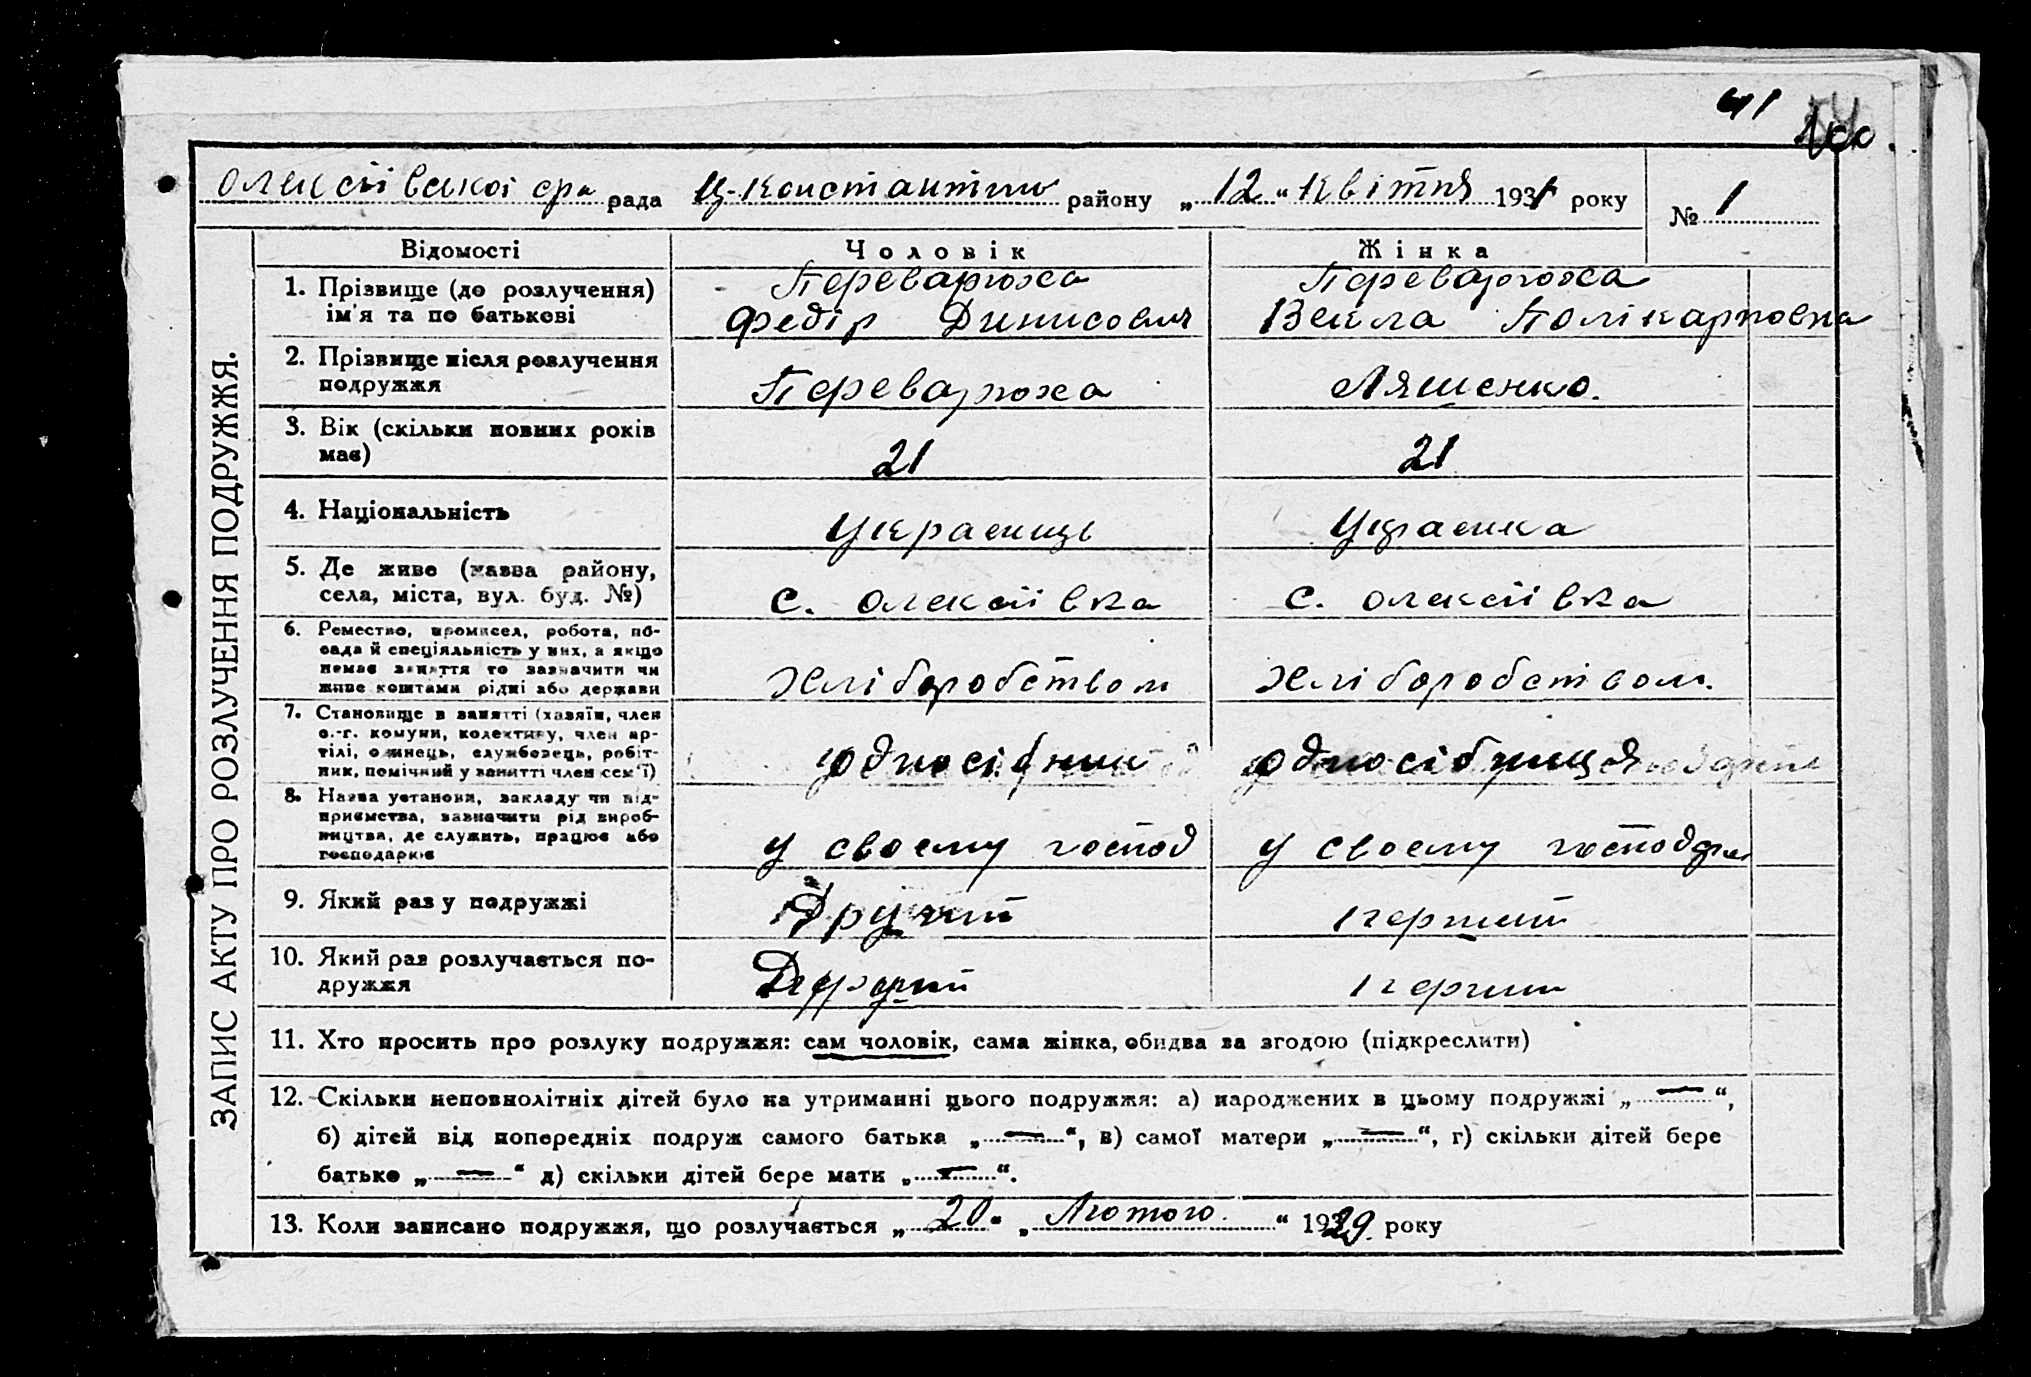 41
Олексіівскоі ср рада Ц-Константин району „ 12 “ Квітня 1931 року № 1
ЗАПИС АКТУ ПРО РОЗЛУЧЕННЯ ПОДРУЖЖЯ.
Відомості Чоловік Жінка
1. Прізвище (до розлучення) Перевартоха Перевартоха
ім'я та по батькові Федір Динисович Векла Полікарповна
2. Прізвище після розлучення
подружжя Перевартоха Ляшенко.
3. Вік (скільки повних років
має) 21 21
4. Національність Украєнць Украєнка
5. Де живе (назва району,
села, міста, вул. буд. №) с. Олексіівка с. Олексіівка
6. Ремество, промисел, робота, по-
сада й спеціяльність у них, а якщо
немає заняття то зазначити чи
живе коштами рідні або держави Хліборобством Хліборобством.
7. Становище в занятті (хазяїн, член
с.-г. комуни, колективу, член ар-
тілі, одинець, службовець, робіт-
ник, помічний у занятті член сем'ї) односібник односібниця
8. Назва установи, закладу чи під-
приємства, зазначити рід вироб-
ництва, де служить, працює або
господарює у своему господ у своему господ
9. Який раз у подружжі Другий перший
10. Який раз розлучається по-
дружжя Другий перший
11. Хто просить про розлуку подружжя: сам чоловік, сама жінка, обидва за згодою (підкреслити)
12. Скільки неповнолітніх дітей було на утриманні цього подружжя: а) народжених в цьому подружжі „ — “,
б) дітей від попередніх подруж самого батька „ — “, в) самої матери „ — “, г) скільки дітей бере
батько „ — “ д) скільки дітей бере мати „ — “.
13. Коли записано подружжя, що розлучається „ 20 “ „ Лютого. “ 1929 року